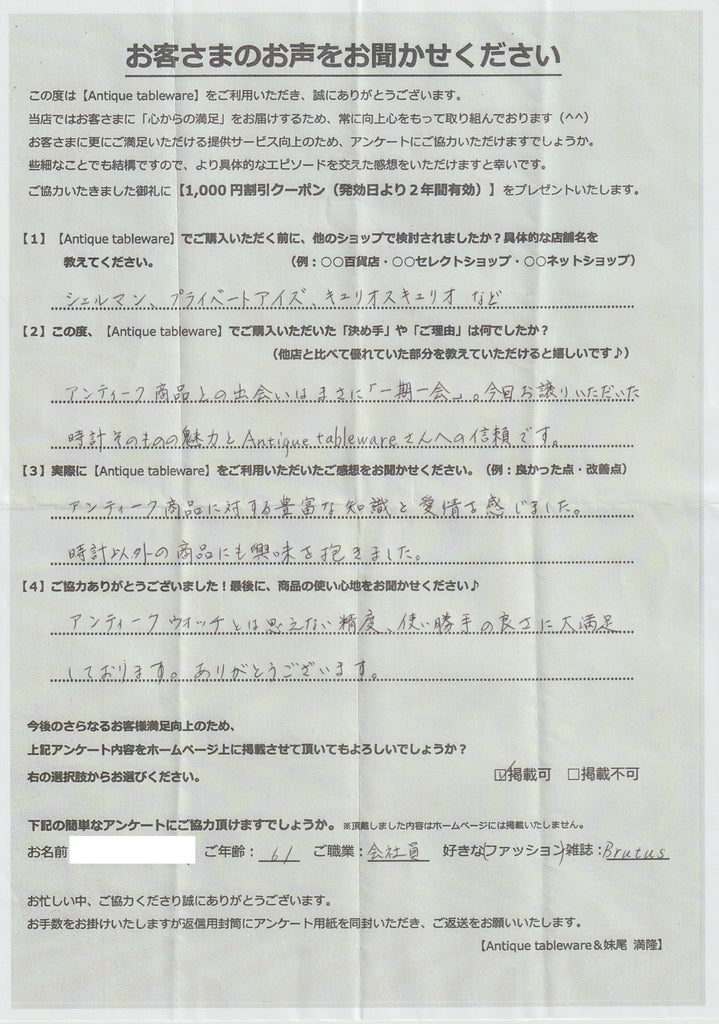 お客さまのお声をお聞かせください
この度は【Antique tableware】をご利用いただき、誠にありがとうございます。
当店ではお客さまに「心からの満足」をお届けするため、常に向上心をもって取り組んでおります（^^）
お客さまに更にご満足いただける提供サービス向上のため、アンケートにご協力いただけますでしょうか。
些細なことでも結構ですので、より具体的なエピソードを交えた感想をいただけますと幸いです。
ご協力いたきました御礼に【1,000 円割引クーポン（発効日より２年間有効）】をプレゼントいたします。
【１】【Antique tableware】でご購入いただく前に、他のショップで検討されましたか？具体的な店舗名を
教えてください。 （例：○○百貨店・○○セレクトショップ・○○ネットショップ）
シェルマン、プライベートアイズ、キュリオスキュリオ など
【２】この度、【Antique tableware】でご購入いただいた「決め手」や「ご理由」は何でしたか？
（他店と比べて優れていた部分を教えていただけると嬉しいです♪）
アンティーク商品との出会いはまさに「一期一会」。今回お譲りいただいた
時計そのものの魅力とAntique tablewareさんへの信頼です。
【３】実際に【Antique tableware】をご利用いただいたご感想をお聞かせください。（例：良かった点・改善点）
アンティーク商品に対する豊富な知識と愛情を感じました。
時計以外の商品にも興味を抱きました。
【４】ご協力ありがとうございました！最後に、商品の使い心地をお聞かせください♪
アンティークウォッチとは思えない精度、使い勝手の良さに大満足
しております。ありがとうございます。
今後のさらなるお客様満足向上のため、
上記アンケート内容をホームページ上に掲載させて頂いてもよろしいでしょうか？
右の選択肢からお選びください。 ☑掲載可 □掲載不可
下記の簡単なアンケートにご協力頂けますでしょうか。※頂戴しました内容はホームページには掲載いたしません。
お名前 ご年齢：61 ご職業：会社員 好きな(ファッション)雑誌：Brutus
お忙しい中、ご協力くださり誠にありがとうございます。
お手数をお掛けいたしますが返信用封筒にアンケート用紙を同封いただき、ご返送をお願いいたします。
【Antique tableware＆妹尾 満隆】